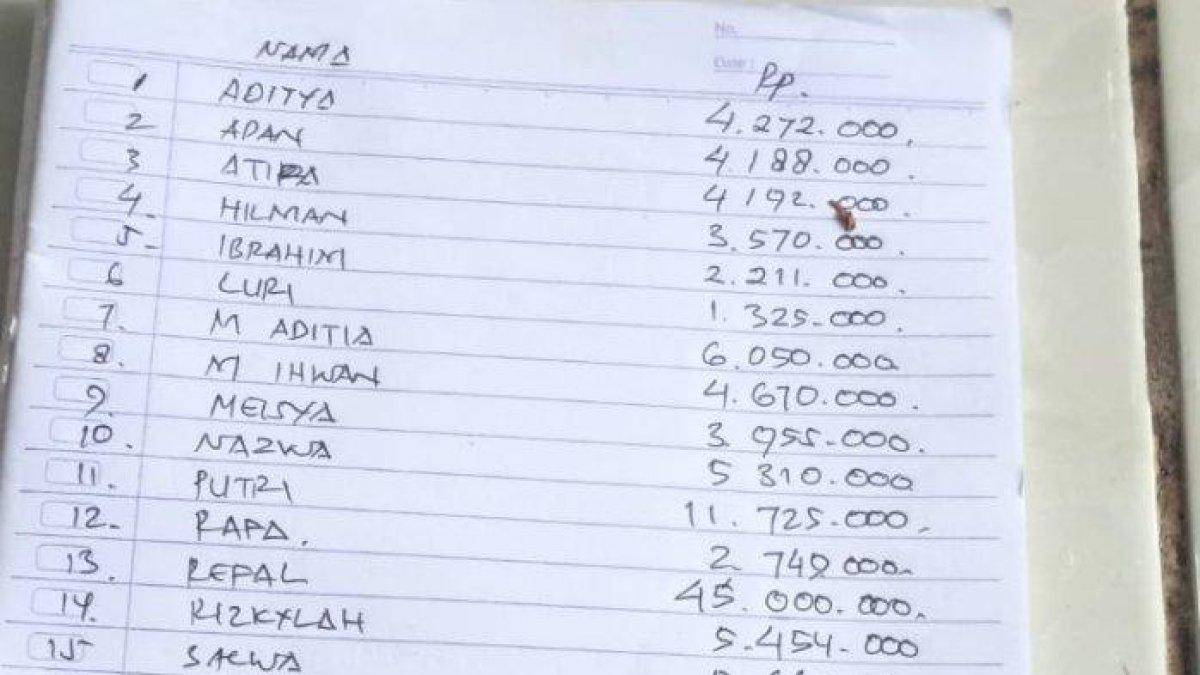 No.
Date :
NAMA Rp.
1 ADITYA 4.272.000,
2 ADAN 4.188.000.
3 ATIRA 4 192.000.
4. HILMAN 3.570.000.
5- IBRAHIM 2.211.000.
6 LURI 1.325-000.
7. M ADITIA 6.050.000
8. M IHWAN 4.670.000.
9. MEISYA 3 955-000.
10. NAZWA 5 310.000
11. PUTRI 11.725-000.
12- RAPA. 2 749 000.
13. REPAL 45.000.000.
14. RIZKYLAH 5.454-000
15 SALWA